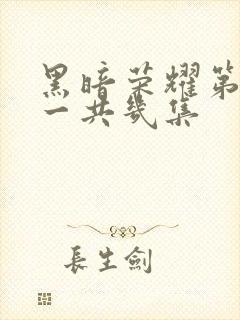 黑暗荣耀第
一共幾集
長生劍